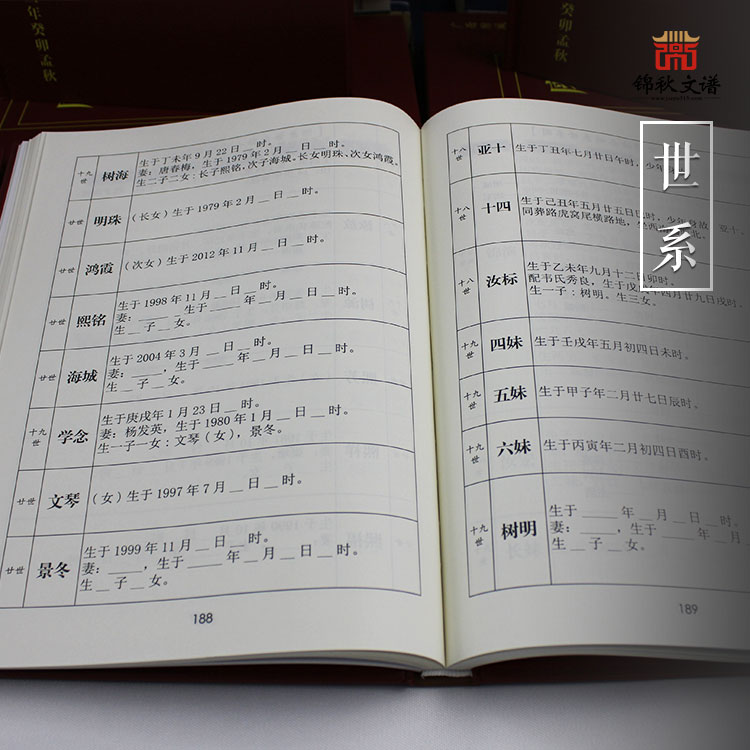 年癸卯孟秋
锦秋文谱
世系
十九世 树海 生于丁未年9月22日__时。
妻：唐春梅，生于1979年2月__日__时。
生二子二女：长子熙铭，次子海城。长女明珠、次女鸿霞。
廿世 明珠 （长女）生于1979年2月__日__时。
廿世 鸿霞 （次女）生于2012年11月__日__时。
廿世 熙铭 生于1998年11月__日__时。
妻：____，生于____年__月__日__时。
生__子__女。
廿世 海城 生于2004年3月__日__时。
妻：____，生于____年__月__日__时。
生__子__女。
十九世 学念 生于庚戌年1月23日__时。
妻：杨发英，生于1980年1月__日__时。
生一子一女：文琴（女），景冬。
廿世 文琴 （女）生于1997年7月__日__时。
廿世 景冬 生于1999年11月__日__时。
妻：____，生于____年__月__日__时。
生__子__女。
188
十八世 亚十 生于丁丑年七月廿日午时，少年
十八世 十四 生于己丑年五月廿五日巳时，少年身故 亚十、
同葬路虎窝尾横路地，坐西
十八世 汝标 生于乙未年九月十二日卯时。
配韦氏秀良，生于戊 年四月廿九日戌时。
生一子：树明。生三女。
十九世 四妹 生于壬戌年五月初四日未时。
十九世 五妹 生于甲子年二月廿七日辰时。
十九世 六妹 生于丙寅年二月初四日酉时。
十九世 树明 生于____年__月__日__时。
妻：____，生于____年__月__日
生__子__女。
189